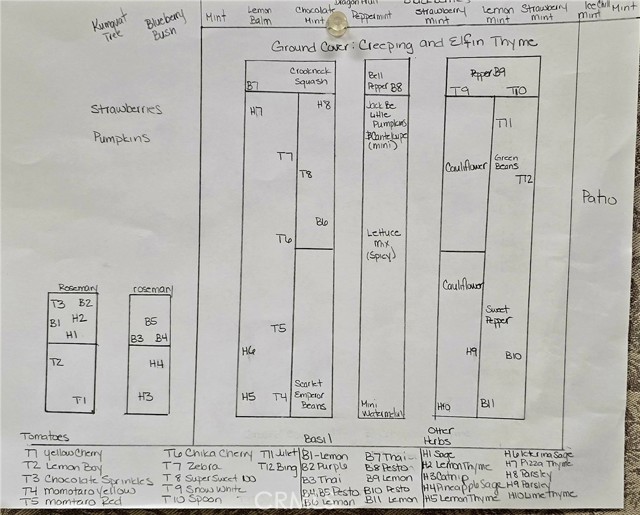 Kumquat Tree
Blueberry Bush
Mint
Lemon Balm
Chocolate Mint
Peppermint
Strawberry mint
Lemon mint
Strawberry mint
Ice Chill Mint
Mint
Ground Cover: Creeping and Elfin Thyme
Strawberries
Pumpkins
Crookneck Squash
B7
H7
H8
T7
T8
B6
T6
T5
H6
H5
T4
Scarlet Emperor Beans
Bell Pepper B8
Jack Be Little Pumpkins
(mini)
Lettuce Mix (Spicy)
Mini Watermelon
Pepper B9
T9
T10
T11
Cauliflower
Green Beans
T12
Cauliflower
Sweet Pepper
H9
B10
H10
B11
Patio
Rosemary
T3
B2
B1
H2
H1
T2
T1
rosemary
B5
B3
B4
H4
H3
Tomatoes
T1 yellow Cherry
T2 Lemon Boy
T3 Chocolate Sprinkles
T4 momotaro yellow
T5 momtaro Red
T6 Chika Cherry
T7 Zebra
T8 Super Sweet 100
T9 Snow White
T10 Spoon
T11 Juliet
T12 Bing
Basil
B1-Lemon
B2 Purple
B3 Thai
B4,B5 Pesto
B6 Lemon
B7 Thai
B8 Pesto
B9 Lemon
B10 Pesto
B11 Lemon
Other Herbs
H1 Sage
H2 Lemon Thyme
H3 Catnip
H4 Pineapple Sage
H5 Lemon Thyme
H6 Icterina Sage
H7 Pizza Thyme
H8 Parsley
H9 Parsley
H10 Lime Thyme